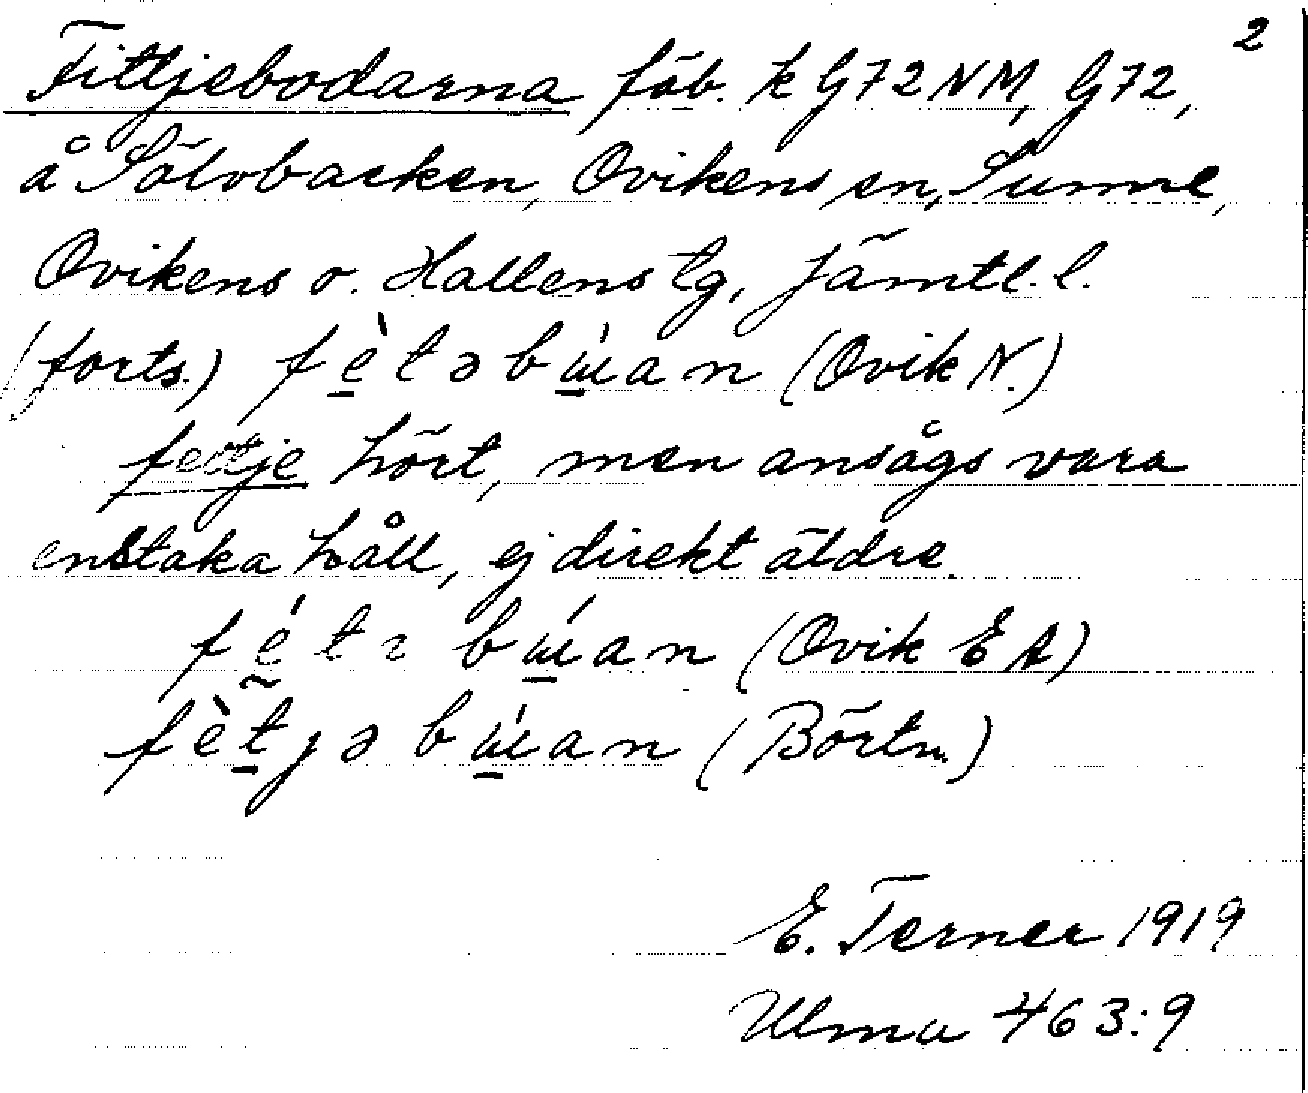 2
Fittjebodarna fäb. k G72NM, G72,
å Sölvbacken, Ovikens sn, Sunne,
Ovikens o. Hallens tg, Jämtl. l.
(forts.) fè̱təbɯ̱́an (Ovik N.)
fettje hört, men ansågs vara
enstaka håll, ej direkt äldre.
fé̱tə bɯ̱́an (Ovik EA)
fèṯjə bɯ̱́an (Börtn.)
E. Terner 1919
Ulma 463:9